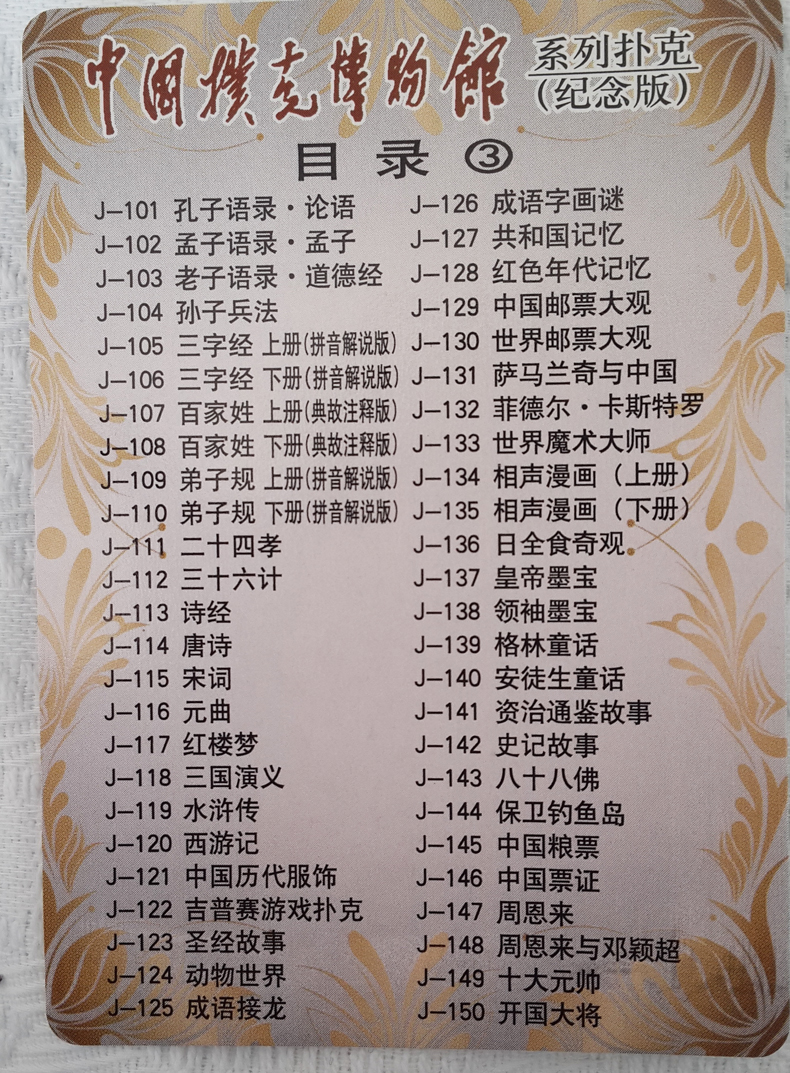 中国撲克博物館
系列扑克
(纪念版)
目录③
J—101 孔子语录·论语
J—102 孟子语录·孟子
J—103 老子语录·道德经
J—104 孙子兵法
J—105 三字经 上册(拼音解说版)
J—106 三字经 下册(拼音解说版)
J—107 百家姓 上册(典故注释版)
J—108 百家姓 下册(典故注释版)
J—109 弟子规 上册(拼音解说版)
J—110 弟子规 下册(拼音解说版)
J—111 二十四孝
J—112 三十六计
J—113 诗经
J—114 唐诗
J—115 宋词
J—116 元曲
J—117 红楼梦
J—118 三国演义
J—119 水浒传
J—120 西游记
J—121 中国历代服饰
J—122 吉普赛游戏扑克
J—123 圣经故事
J—124 动物世界
J—125 成语接龙
J—126 成语字画谜
J—127 共和国记忆
J—128 红色年代记忆
J—129 中国邮票大观
J—130 世界邮票大观
J—131 萨马兰奇与中国
J—132 菲德尔·卡斯特罗
J—133 世界魔术大师
J—134 相声漫画（上册）
J—135 相声漫画（下册）
J—136 日全食奇观
J—137 皇帝墨宝
J—138 领袖墨宝
J—139 格林童话
J—140 安徒生童话
J—141 资治通鉴故事
J—142 史记故事
J—143 八十八佛
J—144 保卫钓鱼岛
J—145 中国粮票
J—146 中国票证
J—147 周恩来
J—148 周恩来与邓颖超
J—149 十大元帅
J—150 开国大将